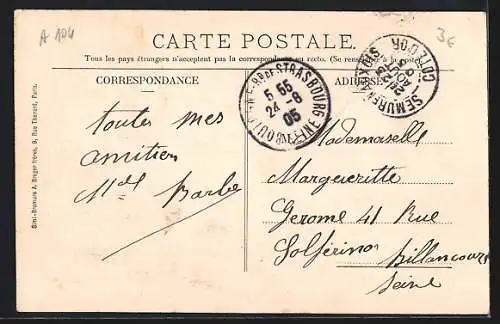 A 104
3€
CARTE POSTALE.
Tous les pays étrangers n'acceptent pas la correspondance au recto. (Se renseigner à la poste.)
CORRESPONDANCE
ADRESSE
STRASBOURG
5 55
24 - 8
05
SEMUR-EN-AUXOIS
COTE D'OR
toutes mes
amitiés
Mell Barbe
Mademoiselle
Margueritte
Gerome 41 Rue
Solférino Billancourt
Seine
Simi-Bromure A. Breger frères, 9, Rue Thénard, Paris.